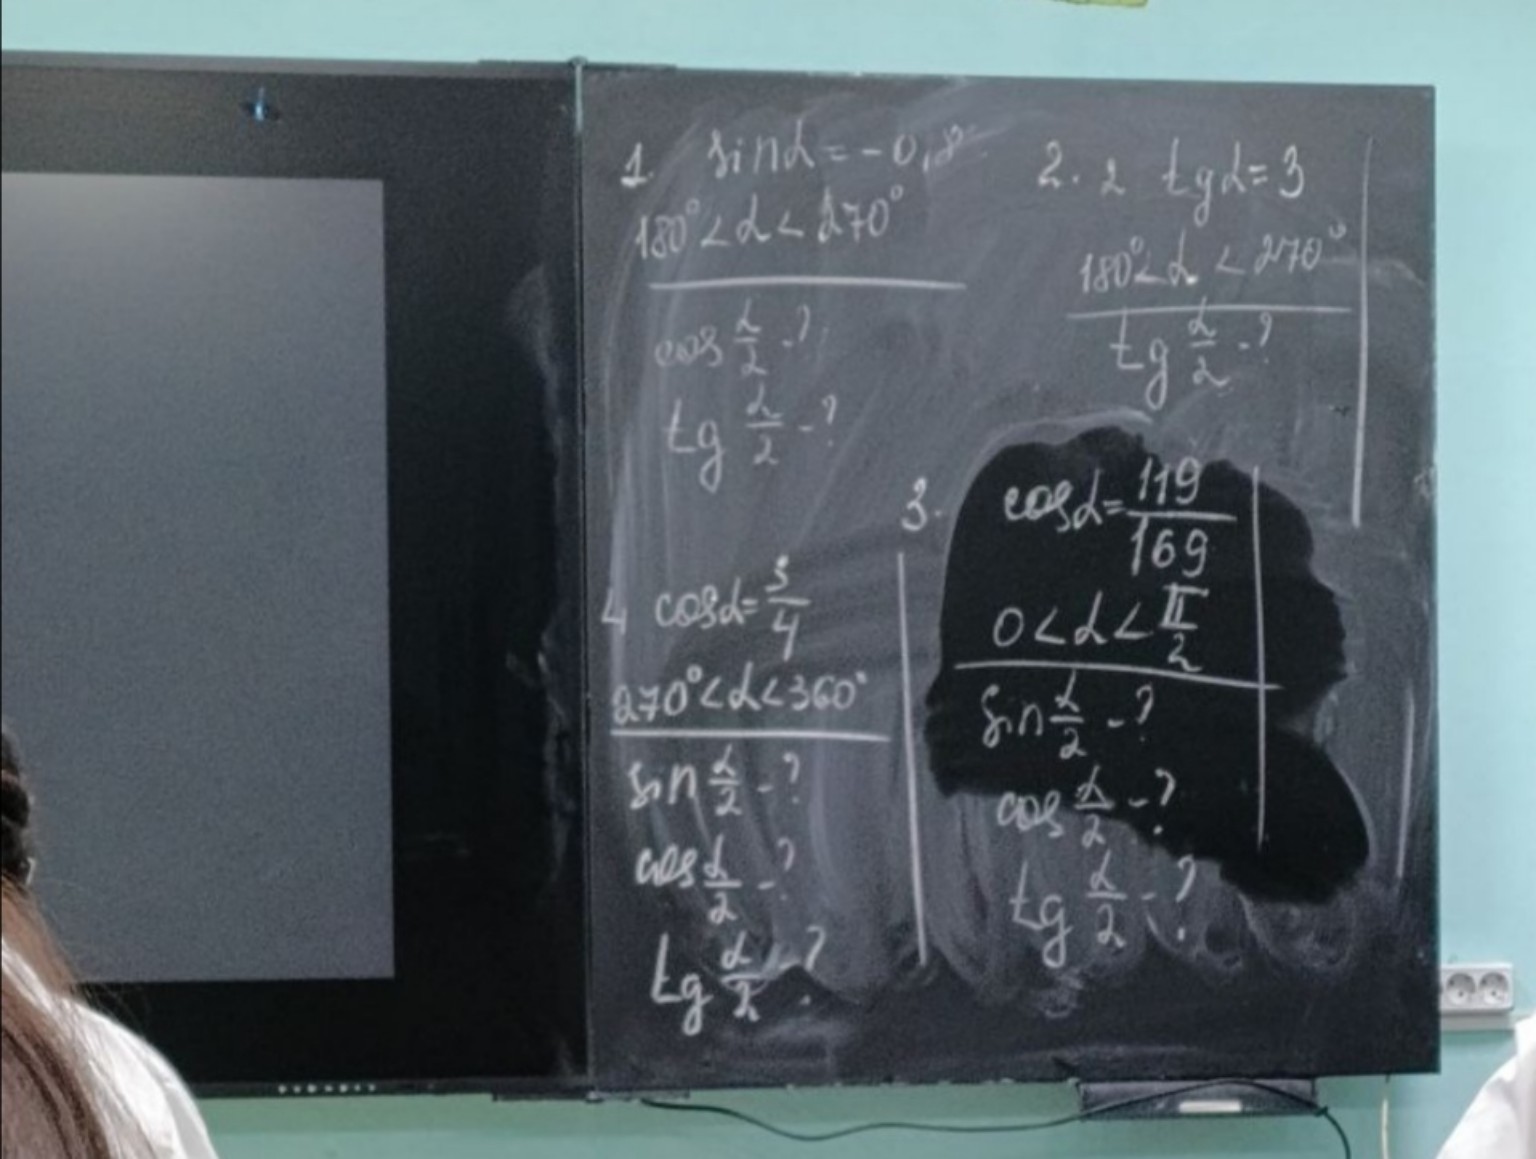 1. sin α = -0,8
180° < α < 270°
cos α/2 - ?
tg α/2 - ?
2. 2 tg α = 3
180° < α < 270°
tg α/2 - ?
3. cos α = 119/169
0 < α < π/2
sin α/2 - ?
cos α/2 - ?
tg α/2 - ?
4 cos α = 3/4
270° < α < 360°
sin α/2 - ?
cos α/2 - ?
tg α/2 - ?